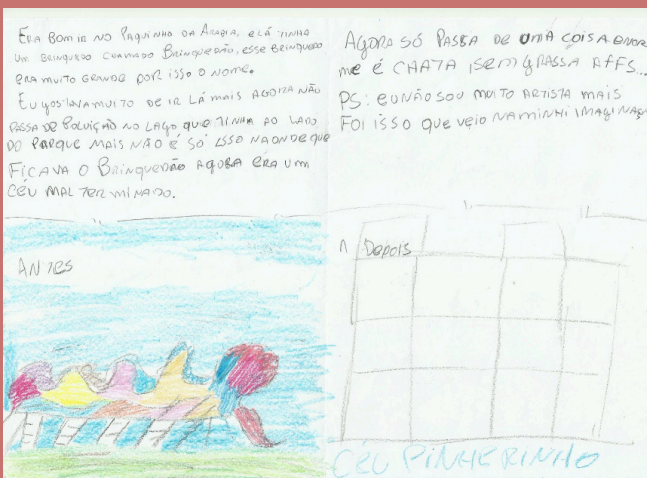 Era bom ir no Paquinho da Arabia, elá tinha
um brinquedo chamado Brinquedão, esse brinquedo
era muito grande por isso o nome.
Eu gostava muito de ir lá mais agora não
passa de poluição no lago que tinha ao lado
do parque mais não é só isso naonde que
ficava o Brinquedão agora era um
céu mal terminado.
Agora só passa de uma coisa enor
me é chata isem grassa affs...
PS: eu não sou muito artista mais
foi isso que veio naminhi imaginaç
Antes
Depois
CÉU PINHERINHO